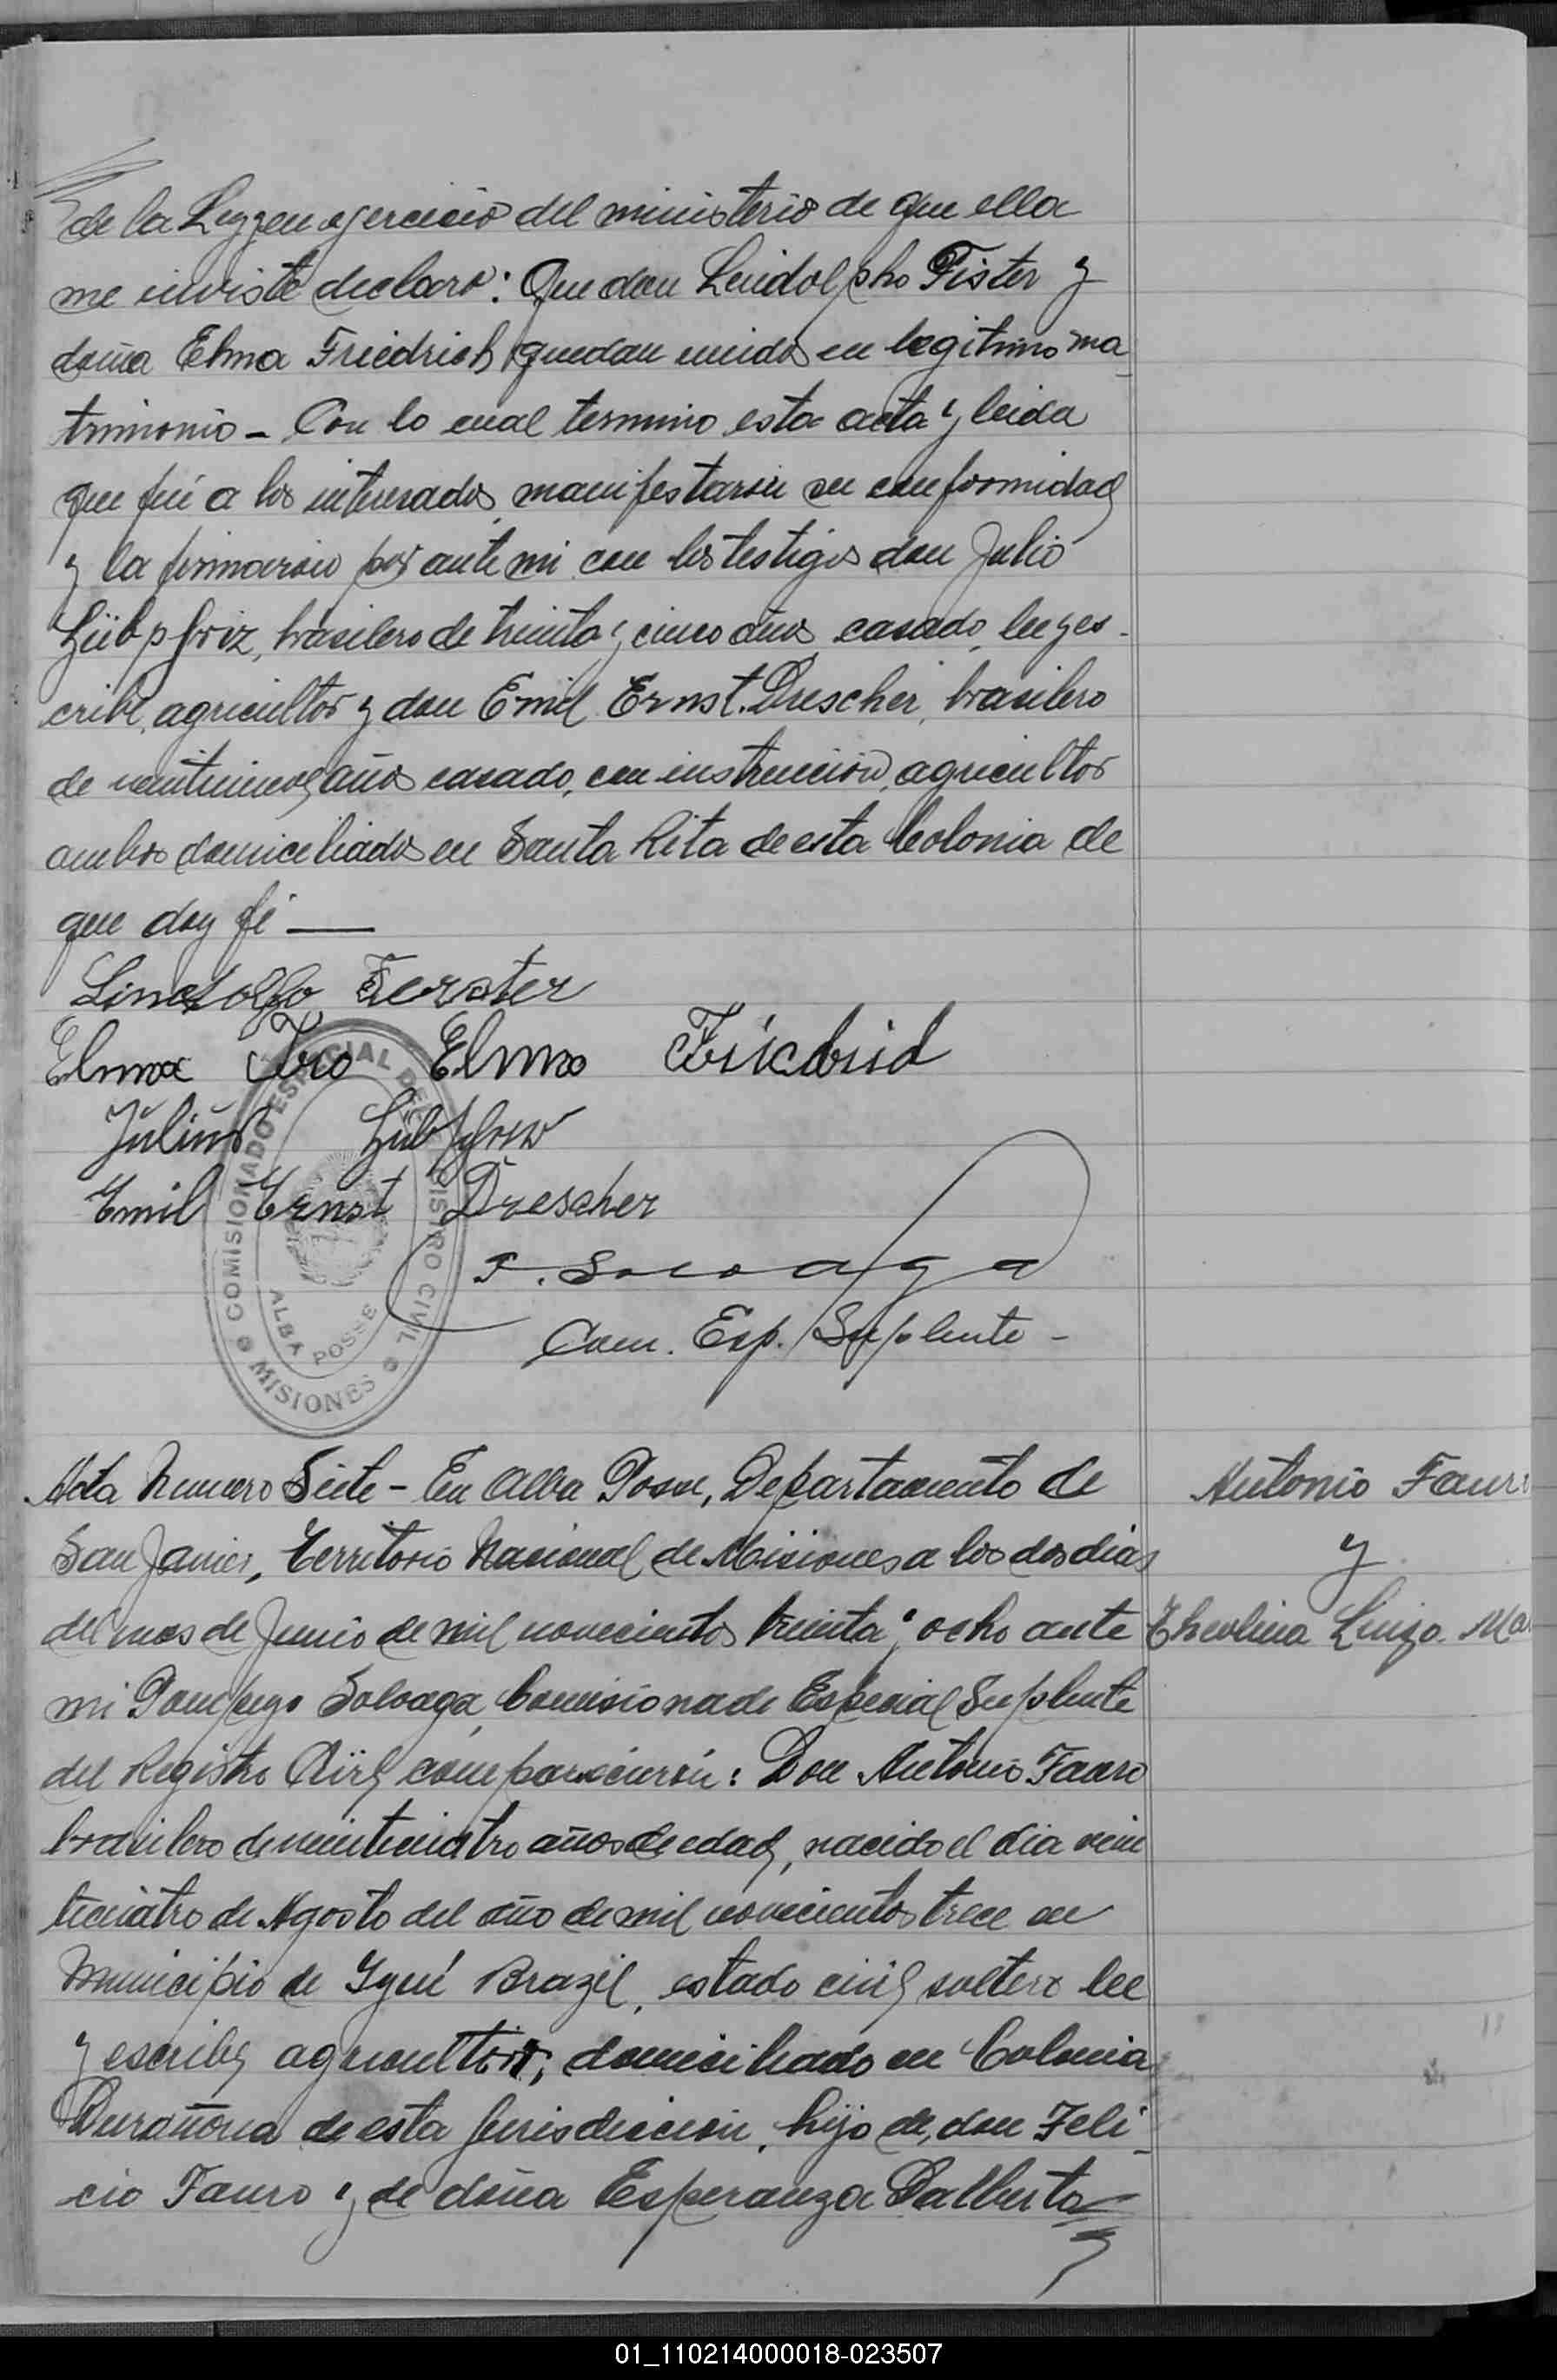 de la Ley y en ejercicio del ministerio de que ella
me inviste declaro: Que don Leidolpho Fister y
doña Elma Friedrich quedan unidos en legitimo ma
trimonio - Con lo cual termino esta acta y leida
que fué a los interesados manifestaron su conformidad
y la firmaron por ante mi con los testigos don Julio
brasilero de treinta y cinco años, casado, lee y es-
cribe, agricultor y don Emil Ernst Drescher, brasilero
de años casado, con instrucción, agricultor
ambos domiciliados en Santa Rita de esta Colonia de
que doy fé —
Lindolfo Ferster
Elma Elma
Julius
Emil Ernst Drescher
P. Soloaga
Com. Esp. Suplente -
COMISIONADO ESPECIAL DEL REGISTRO CIVIL
ALBA POSSE
MISIONES
Acta Numero Siete - En Alba Posse, Departamento de
San Javier, Territorio Nacional de Misiones a los dos dias
del mes de Junio de mil novecientos treinta y ocho ante
mi Pompeyo Soloaga, Comisionado Especial Suplente
del Registro Civil comparecieron: Don Antonio Fauro
brasilero de veinticuatro años de edad, nacido el dia vein
ticuatro de Agosto del año de mil novecientos trece en
Municipio de Yyuí Brazil, estado civil soltero lee
y escribe, agricultor, domiciliado en Colonia
Durañona de esta Jurisdiccion, hijo de, don Feli-
cio Fauro y de doña Esperanza Dalberto
Antonio Fauro
y
Luiza
01_110214000018-023507